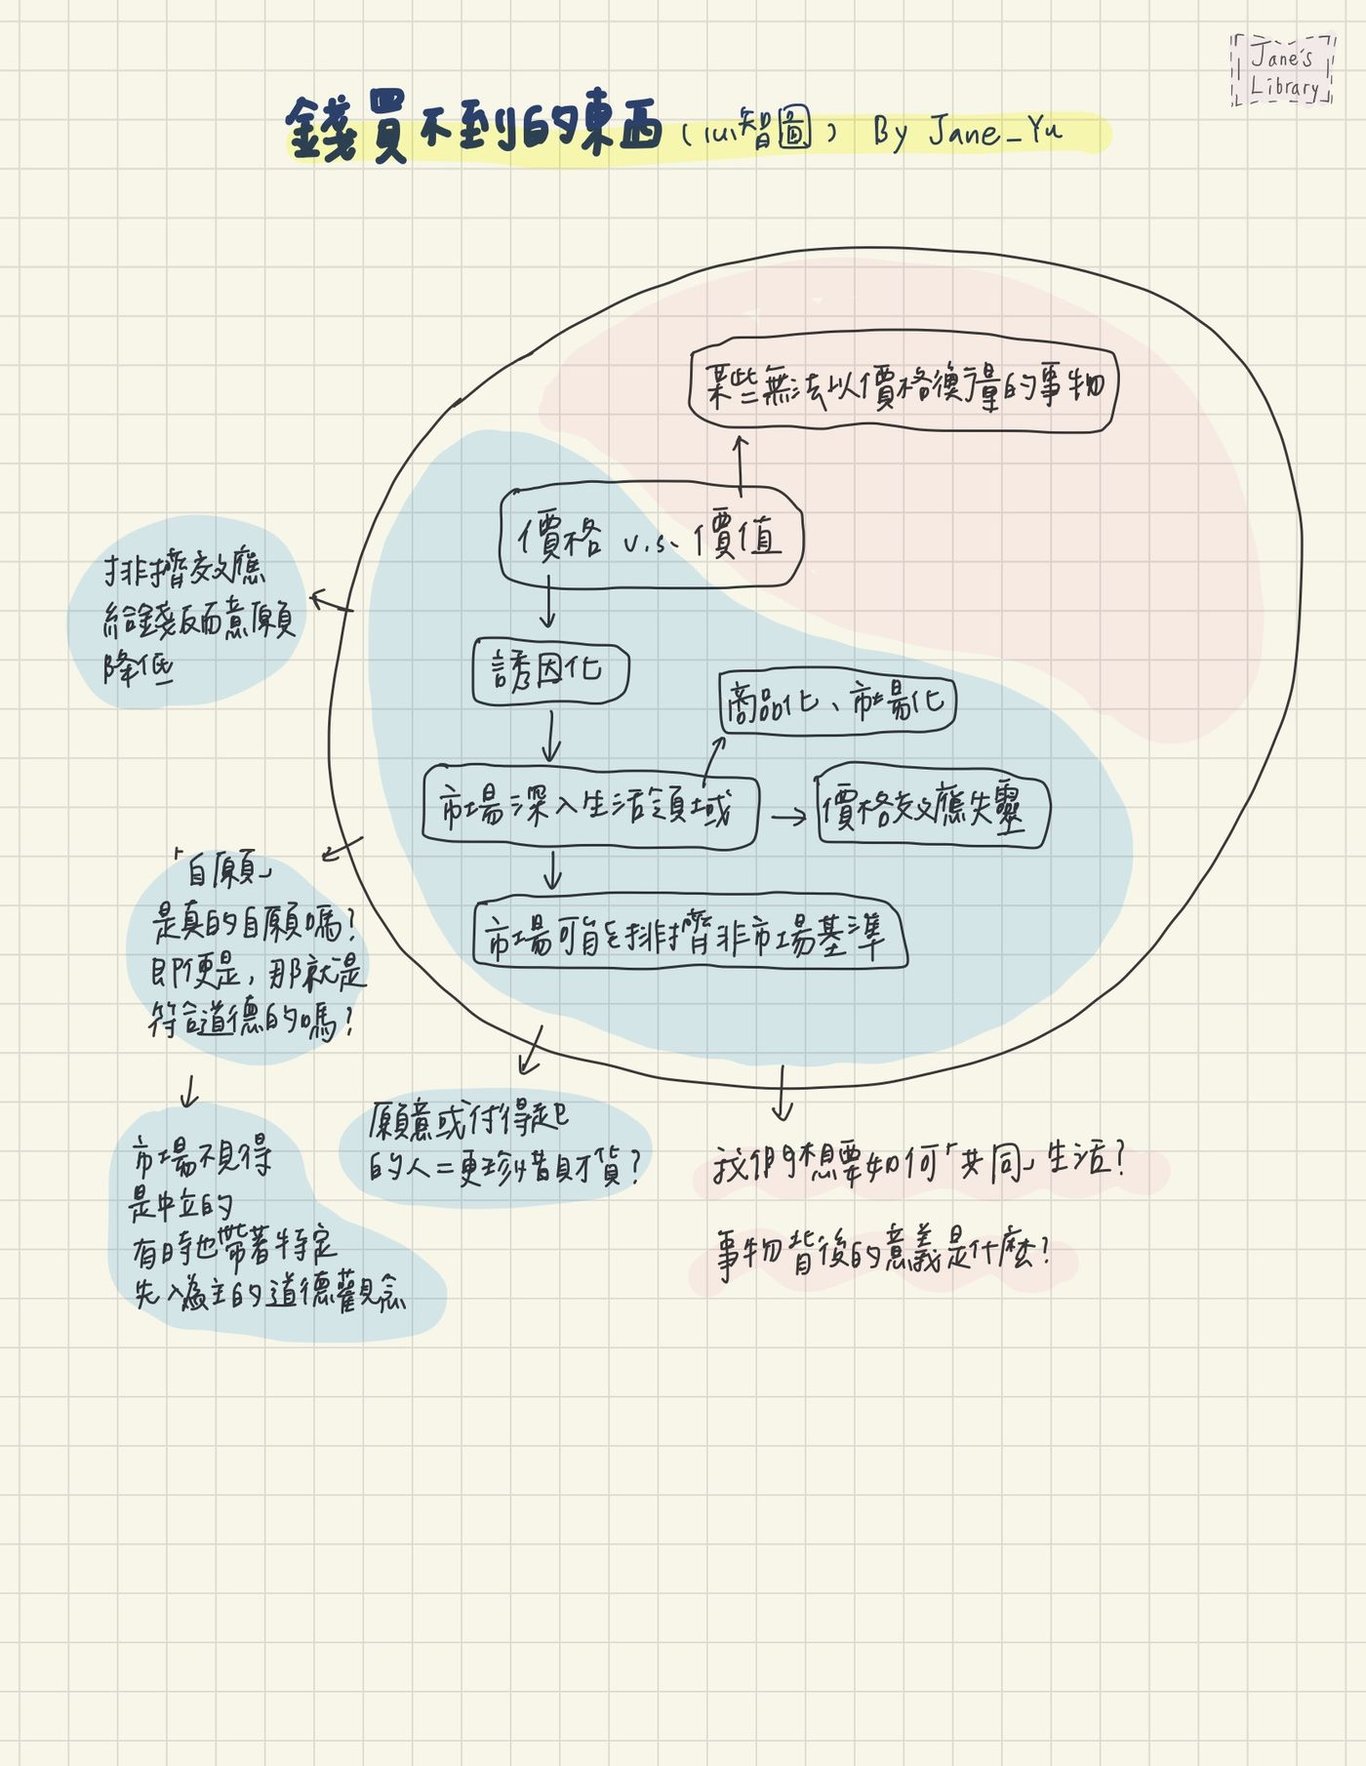 Jane's
Library
錢買不到的東西（心智圖）By Jane_Yu
某些無法以價格衡量的事物
價格 v.s. 價值
排擠效應
給錢反而意願
降低
誘因化
商品化、市場化
市場深入生活領域
價格效應失靈
「自願」
是真的自願嗎？
即便是，那就是
符合道德的嗎？
市場可能排擠非市場基準
願意或付得起
的人＝更珍惜財貨？
市場不見得
是中立的
有時也帶著特定
先入為主的道德觀念
我們想要如何「共同」生活？
事物背後的意義是什麼？